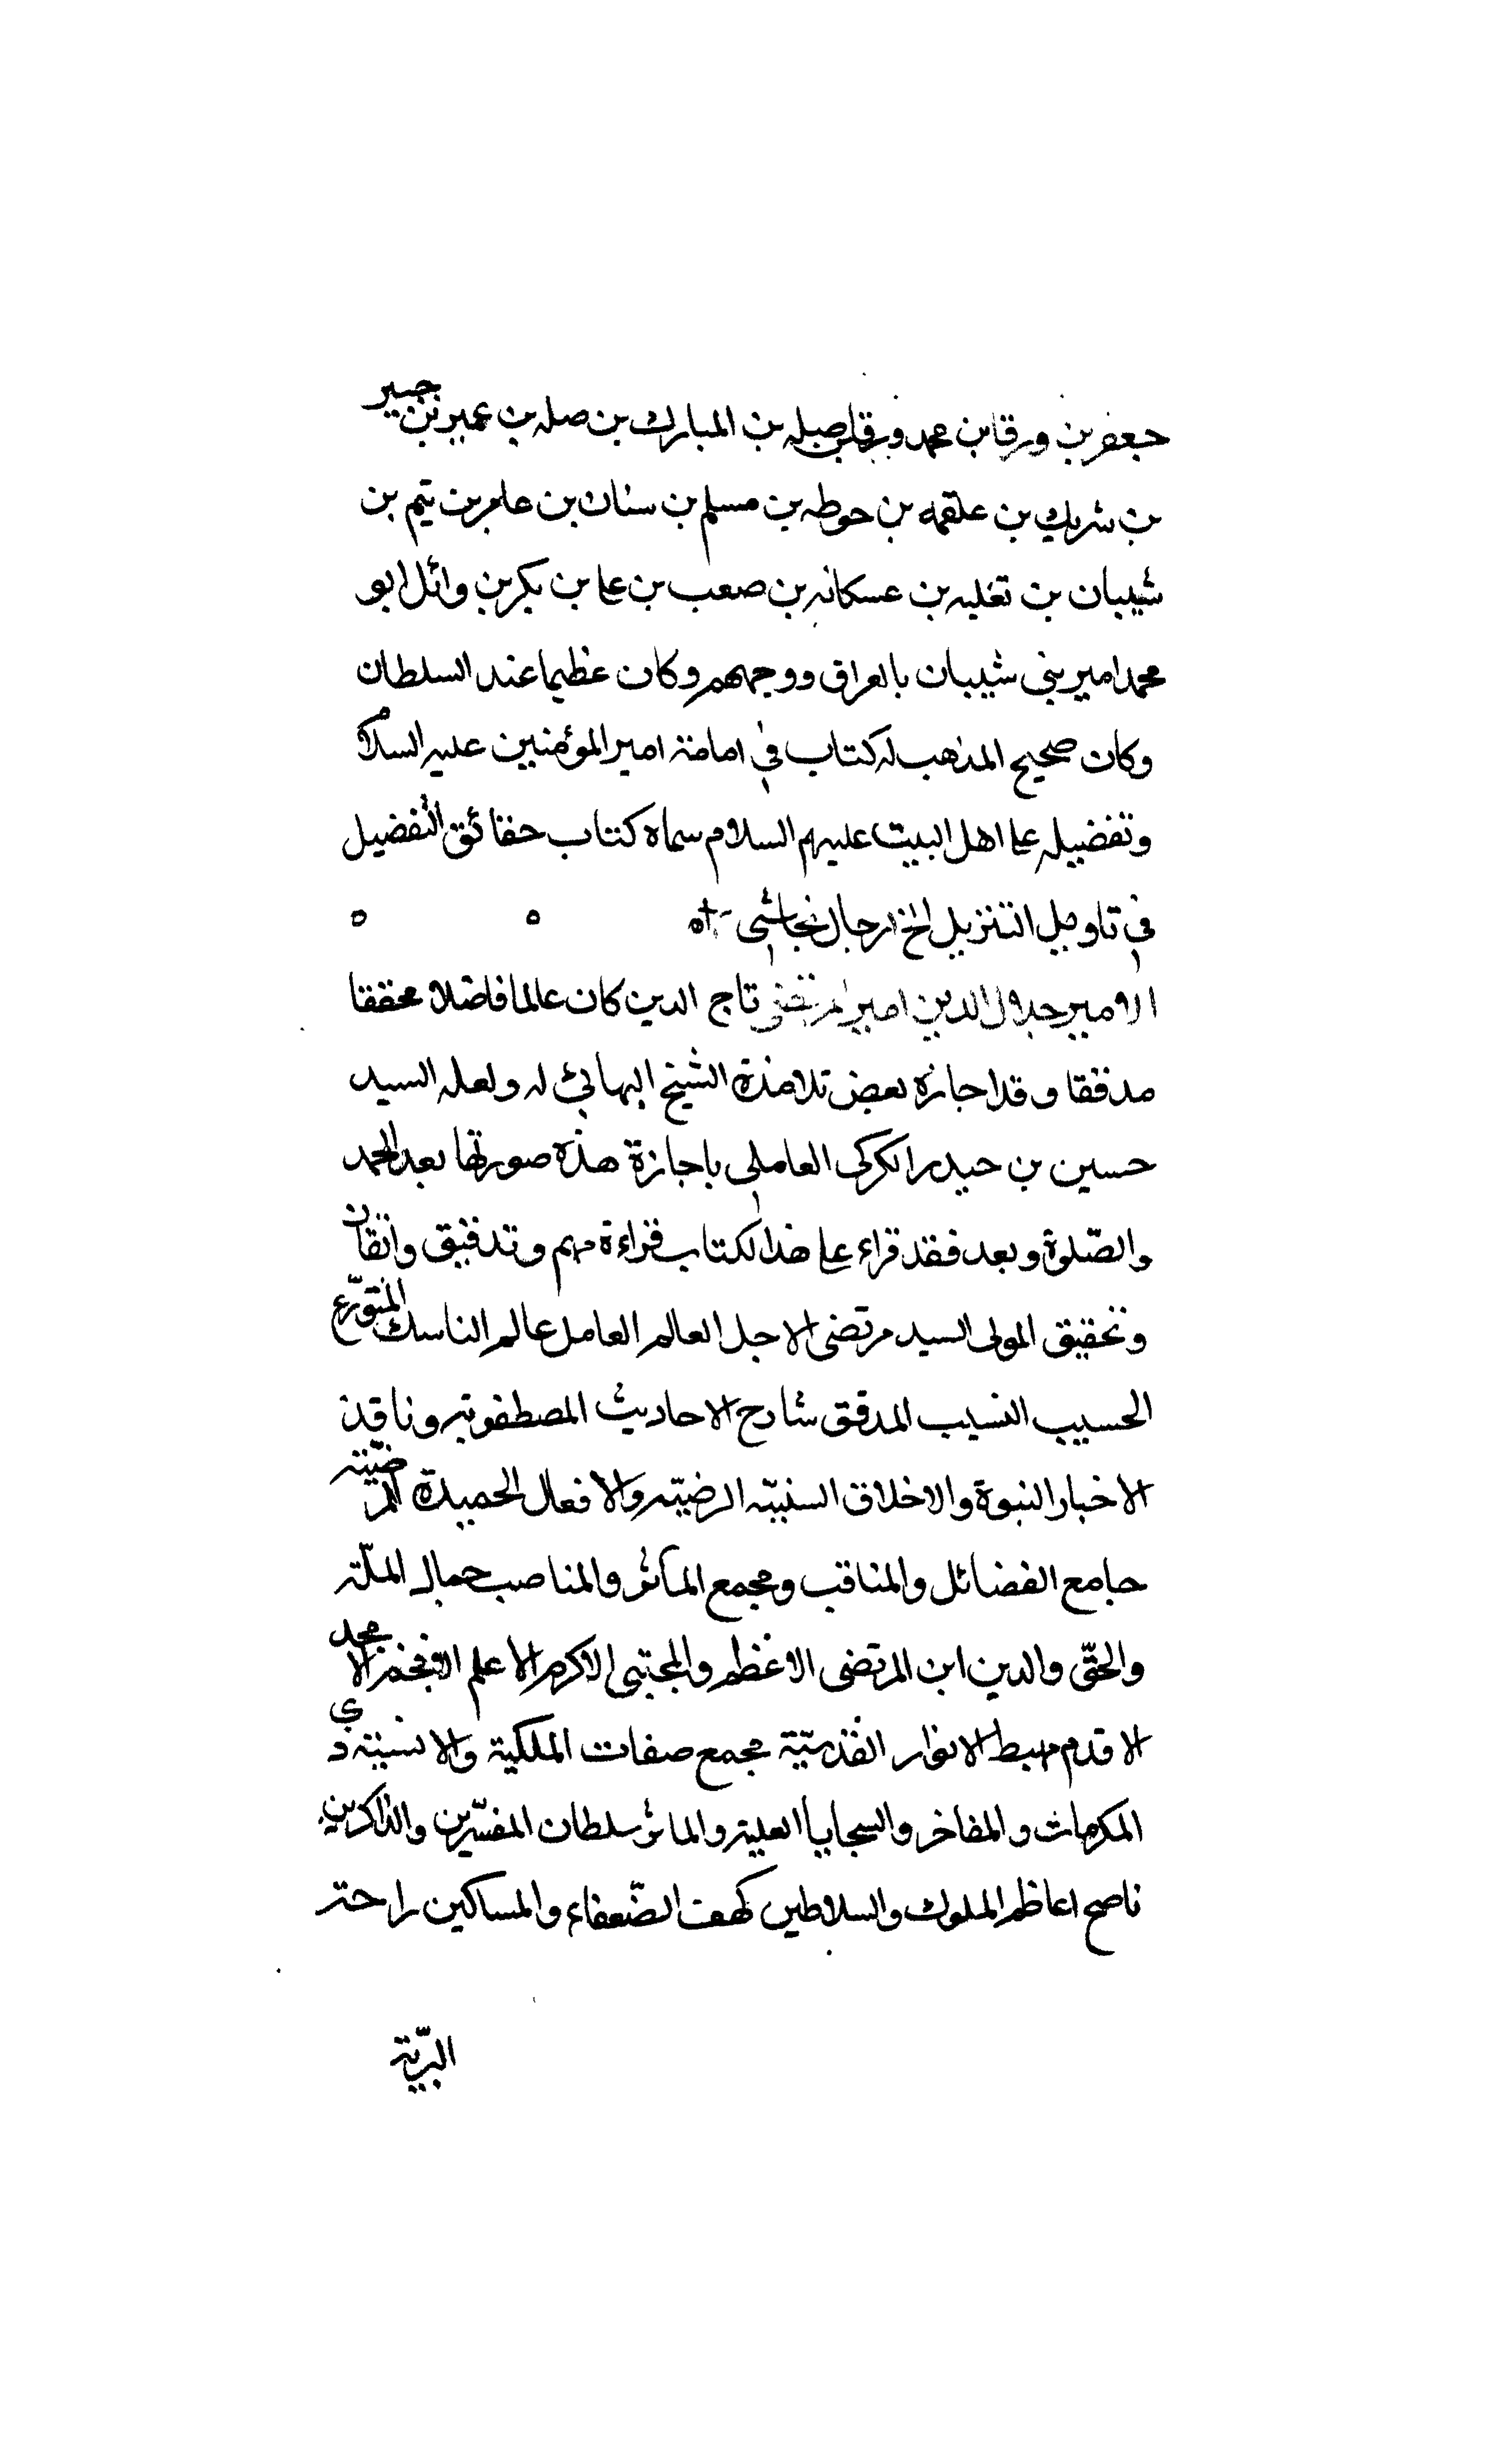 جعفر بن ورقا بن محمد ورقا بن صبله بن المبارك بن صله بن عمير بن جبير
بن شريك بن علقمه بن حوطه بن مسلم بن سنان بن عامر بن تيم بن
شيبان بن تغلبه بن عسكانه بن صعب بن علی بن بكر بن وائل ابو
محمد امير بنی شيبان بالعراق ووجههم وكان عظيما عند السلطان
وكان صحيح المذهب له كتاب في امامة امير المؤمنين عليه السلام
وتفضيله علی اهل البيت عليهم السلام سماه كتاب حقائق التفضيل
في تاويل التنزيل الخ رجال نجاشی
الامير جلال الدين امير المرتضی تاج الدين كان عالما فاضلا محققا
مدققا وقد اجازه بعض تلامذة الشيخ البهائي له ولعله السيد
حسين بن حيدر الكركی العاملی باجازة هذه صورتها بعد الحمد
والصّلوة وبعد فقد قراء علی هذا الكتاب قراءة فهم وتدقيق واتقان
وتحقيق المولی السيد مرتضی الاجل العالم العامل عالم الناسك المتورّع
الحسيب النسيب المدقق شارح الاحاديث المصطفوية وناقد
الاخبار النبوة والاخلاق السنيّة الرضيّة والافعال الحميدة المرضيّة
جامع الفضائل والمناقب ومجمع المآثر والمناصب جمال الملّة
والحقّ والدين ابن المرتضی الاعظم والمجتبی الاكرم الاعلم الافخم الامجد
الاقدم مهبط الانوار القدسيّة مجمع صفات الملكية والانسيّة ذي
المكرمات والمفاخر والسجايا العلية والماثر سلطان المفسّرين والذاكرين
ناصح اعاظم الملوك والسلاطين كهف الضّعفاء والمساكين راحة
البريّة